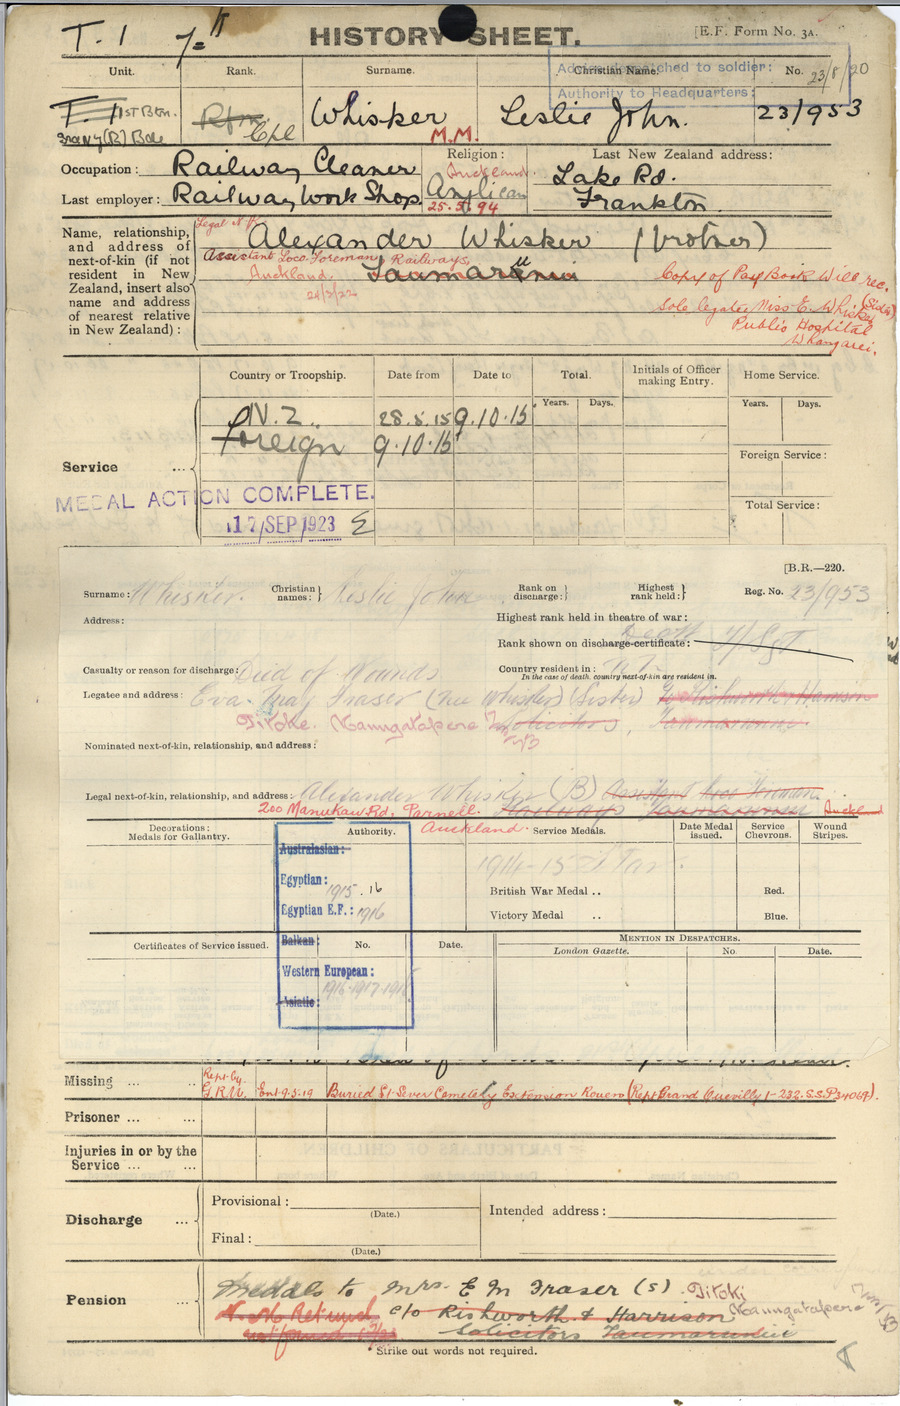 T. 1
HISTORY SHEET.
[E.F. Form No. 3A.
Unit. Rank. Surname. Christian Name. No.
Advice despatched to soldier: 23/8/20
Authority to Headquarters:
1st Batn. Rfm. Cpl Whisker Leslie John. 23/953
M.M.
Occupation: Railway Cleaner
Religion: Anglican
Auckland.
25.5.94
Last New Zealand address:
Lake Rd.
Frankton.
Last employer: Railway Work Shop
Name, relationship, and address of next-of-kin (if not resident in New Zealand, insert also name and address of nearest relative in New Zealand):
Legal N.K.
Alexander Whisker (brother)
Assistant Loco. Foreman, Railways,
Auckland. Taumarunui
24/2/22
Copy of Pay Book Will rec.
Sole legatee, Miss E. Whisker (Sister)
Public Hospital
Whangarei.
Country or Troopship. Date from Date to Total. Initials of Officer making Entry. Home Service.
Years. Days. Years. Days.
N.Z. 28.5.15 9.10.15
Foreign 9.10.15
Foreign Service:
Service ...
MEDAL ACTION COMPLETE.
17 SEP 1923
Total Service:
[B.R.—220.
Surname: Whisker. Christian names: Leslie John Rank on discharge: Highest rank held: Reg. No. 23/953
Address:
Highest rank held in theatre of war:
Rank shown on discharge-certificate: Death T/Sgt.
Casualty or reason for discharge: Died of Wounds
Country resident in: N.Z.
In the case of death, country next-of-kin are resident in.
Legatee and address: Eva May Fraser (nee Whisker) (Sister)
Titoki. Maungatapere Solicitors, Taumarunui
Nominated next-of-kin, relationship, and address:
Legal next-of-kin, relationship, and address: Alexander Whisker (B) Assistant Loco Foreman
200 Manukau Rd, Parnell. Railways Taumarunui Auckland
Auckland.
Decorations: Medals for Gallantry. Authority. Service Medals. Date Medal issued. Service Chevrons. Wound Stripes.
Australasian:
1914-15 Star.
Egyptian: 1915.16
British War Medal .. Red.
Egyptian E.F.: 1916
Victory Medal .. Blue.
Balkan:
Certificates of Service issued. No. Date.
Mention in Despatches.
London Gazette. No. Date.
Western European:
1916-1917-1918
Asiatic:
Missing ... Rept by G.R.U. Ent 9-5-19 Buried St Sever Cemetery Extension Rouen (Rept Grand Quevilly 1-232. S.S.P34069).
Prisoner ... ...
Injuries in or by the Service ... ...
Discharge ...
Provisional:
(Date.)
Intended address:
Final:
(Date.)
Pension ...
Medals to Mrs. E M Fraser (S). Titoki
c/o Rishworth & Harrison Maungatapere
Solicitors Taumarunui
Strike out words not required.